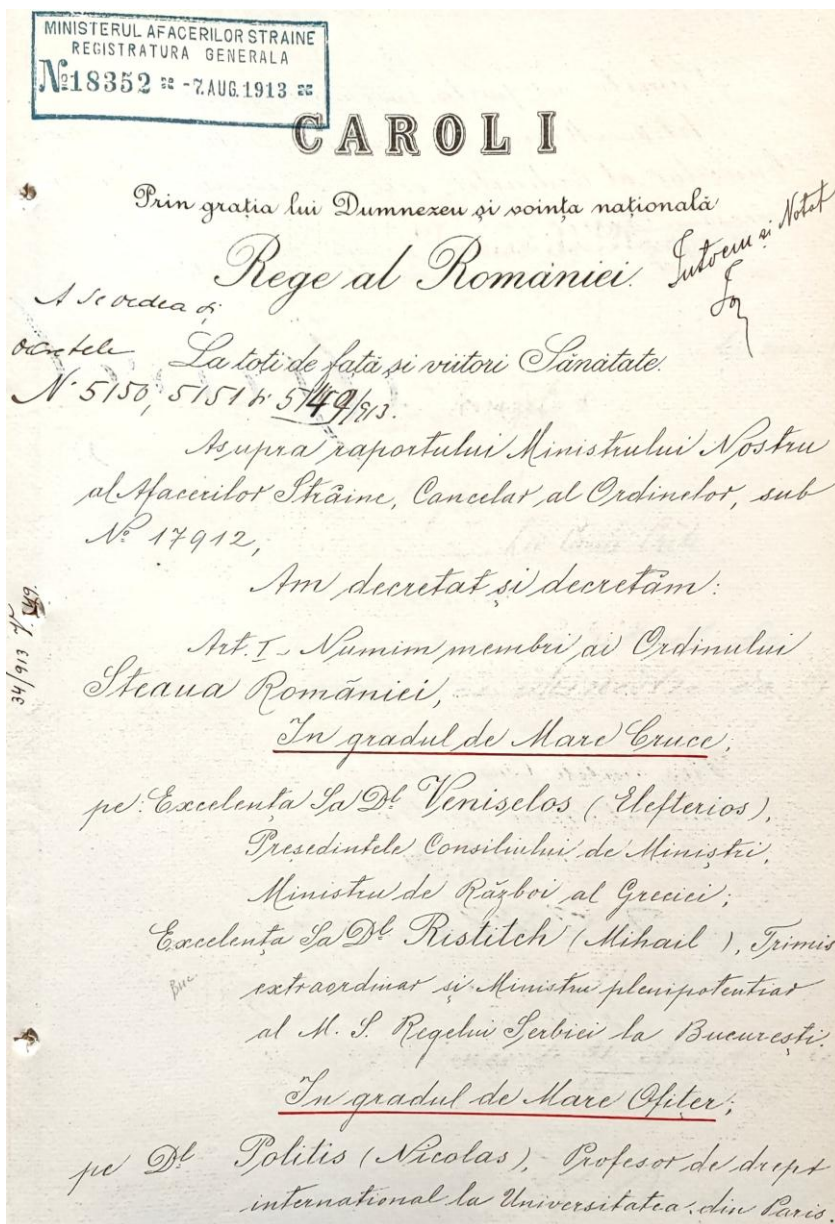 MINISTERUL AFACERILOR STRAINE
REGISTRATURA GENERALA
№ 18352 * -7.AUG.1913 *
CAROL I
Prin grația lui Dumnezeu și voința națională
Rege al României.
Întocm și Notat
A se vedea și
decretele
La toți de față și viitori Sănătate.
N. 5150, 5151 și 5149/913.
Asupra raportului Ministrului Nostru
al Afacerilor Străine, Cancelar al Ordinelor, sub
№ 17912,
Am decretat și decretăm:
Art. I - Numim membri ai Ordinului
Steaua României,
In gradul de Mare Cruce;
pe: Excelența Sa Dl Veniselos (Elefterios),
Președintele Consiliului de Miniștri,
Ministru de Război al Greciei;
Excelența Sa Dl Ristitch (Mihail ), Trimis
Buc.
extraordinar și Ministru plenipotențiar
al M. S. Regelui Serbiei la București.
In gradul de Mare Ofițer;
pe Dl Politis (Nicolas), Profesor de drept
internațional la Universitatea din Paris.